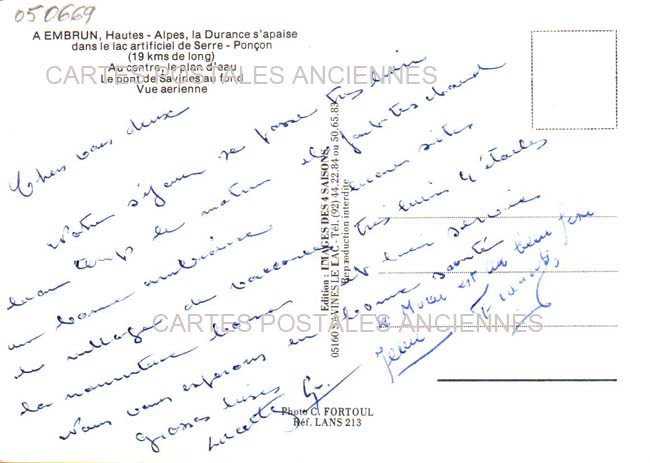 050669
A EMBRUN, Hautes - Alpes, la Durance s'apaise
dans le lac artificiel de Serre - Ponçon
(19 kms de long)
Au centre, le plan d'eau
Le pont de Savines au fond
Vue aerienne
CARTES POSTALES ANCIENNES
Chers vous deux
Notre séjour se passe très bien
beau temps le matin et fort chaud
un bonne ambiance bons sites
le village de vacances très bien 4 étoiles
la nourriture bonne et bon service
Nous vous espérons en bonne santé
grosses bises
Lucette
Jean
Le Muzo est un beau
CARTES POSTALES ANCIENNES
Edition : IMAGES DES 4 SAISONS
05160 SAVINES LE LAC - Tél. (92) 44.22.84 ou 50.65.83
Reproduction interdite
Photo C. FORTOUL
Réf. LANS 213